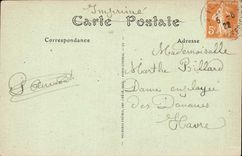 Imprimé
Carte Postale
Correspondance
Adresse
Mademoiselle
Marthe Billard
Dame employée
des Douanes
Havre